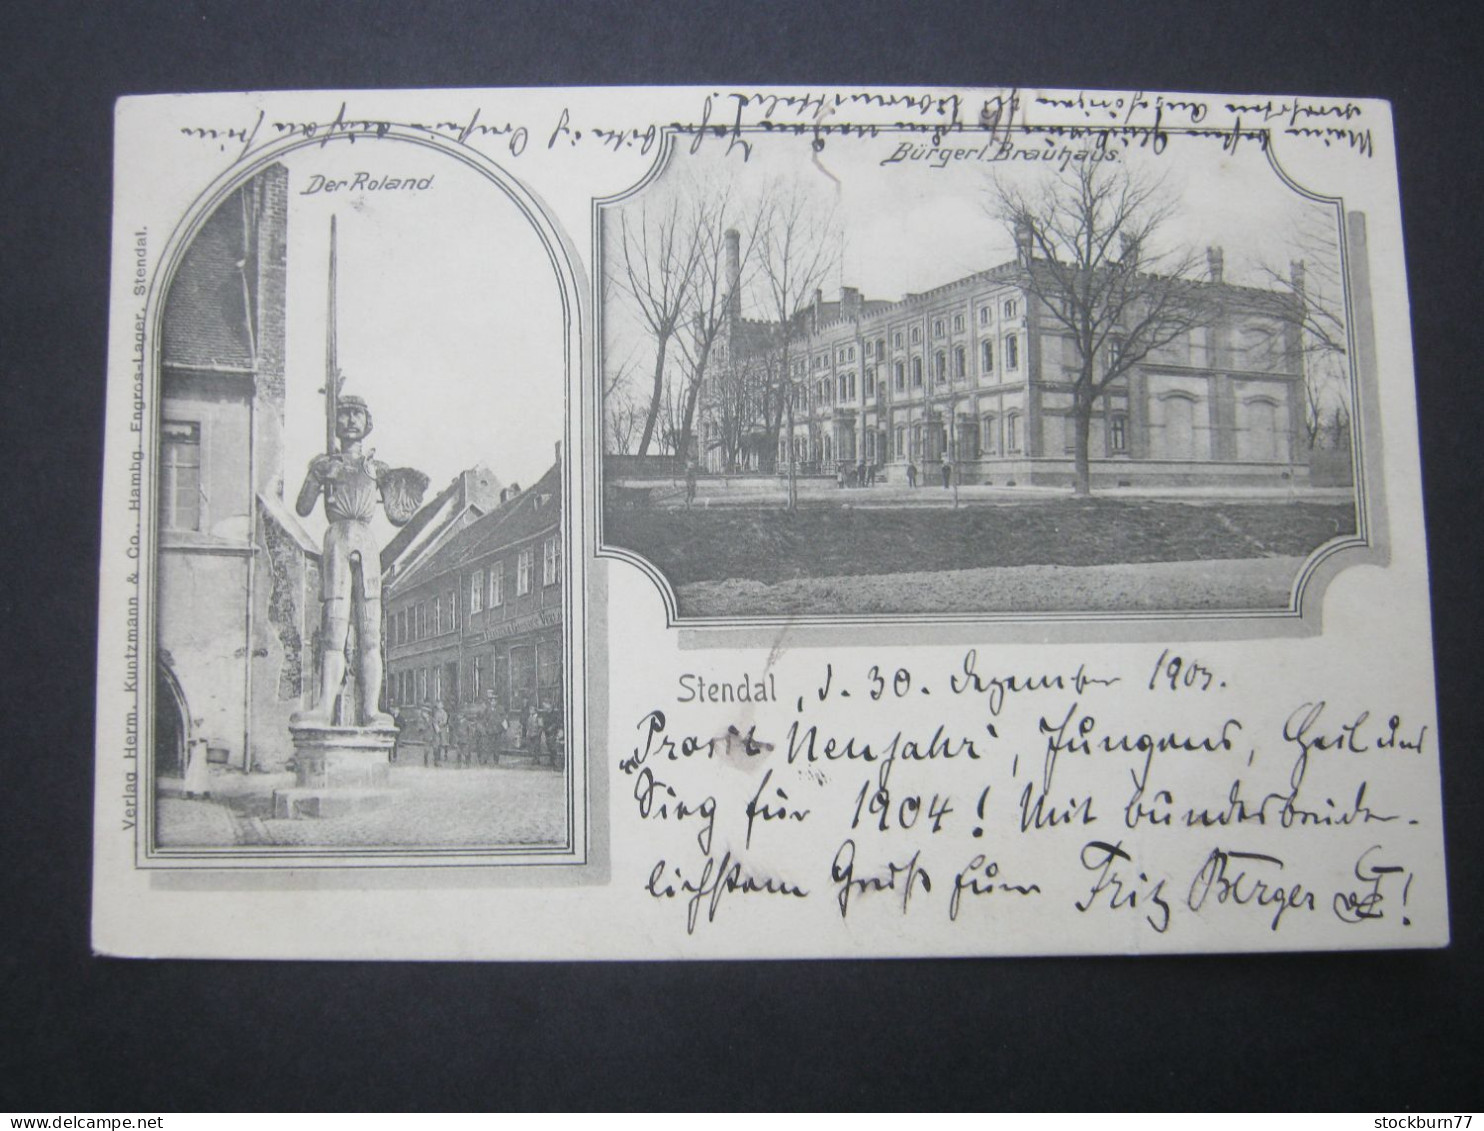 Der Roland.
Bürgerl. Brauhaus.
Verlag Herm. Kuntzmann & Co., Hambg. Engros-Lager, Stendal.
Stendal, d. 30. Dezember 1903.
„Prosit Neujahr“, Jungens, Heil und
Sieg für 1904! Mit bundesbrüder-
lichstem Gruß Euer Fritz Berger
Meine besten Glückwünsche zum neuen Jahr bitte ich
stockburn77